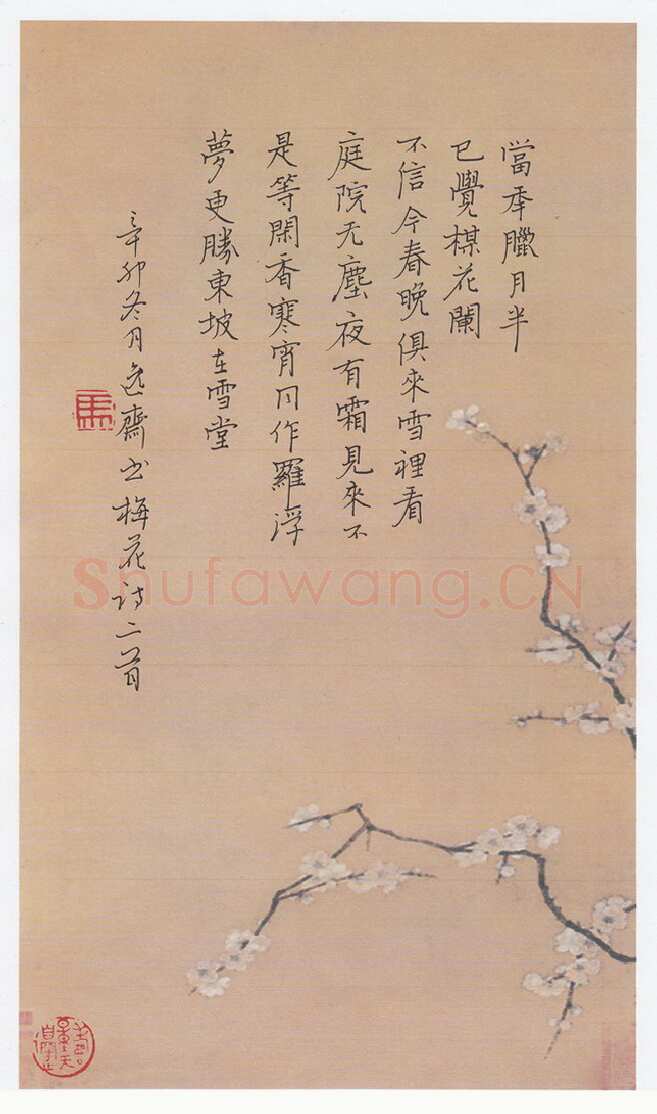 當年臘月半
已覺楳花闌
不信今春晚俱來雪裡看
庭院无塵夜有霜見來不
是等閑香寒宵同作羅浮
夢更勝東坡在雪堂
辛卯冬月逸齋书梅花诗二首
馬
Shufawang.CN